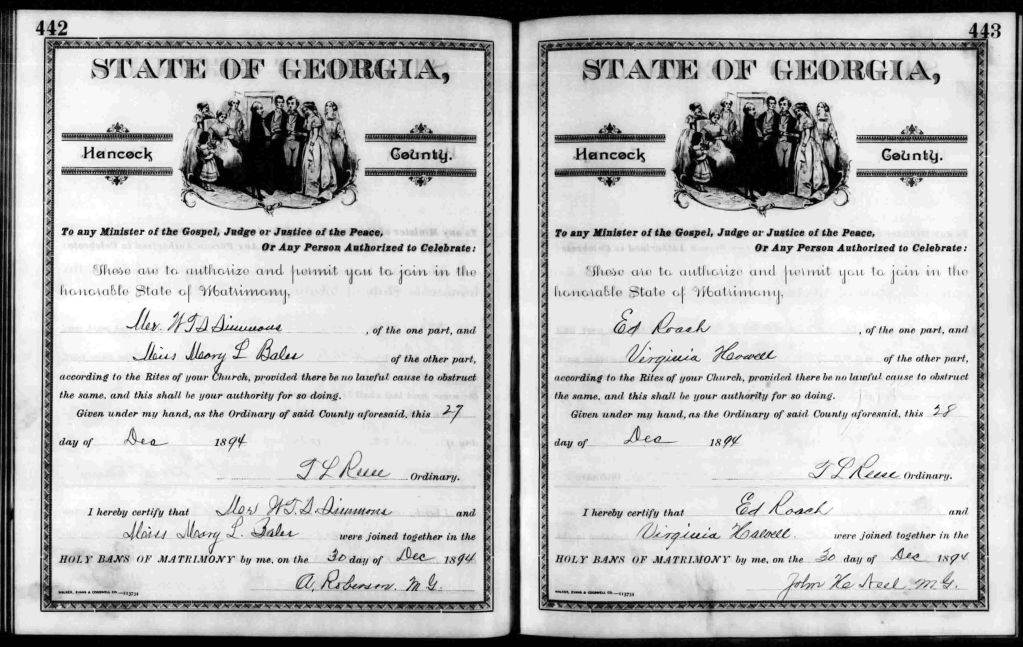 442
STATE OF GEORGIA,
Hancock County.
To any Minister of the Gospel, Judge or Justice of the Peace,
Or Any Person Authorized to Celebrate:
These are to authorize and permit you to join in the
honorable State of Matrimony,
Mr. W T D Simmons , of the one part, and
Miss Mary L Bales of the other part,
according to the Rites of your Church, provided there be no lawful cause to obstruct
the same, and this shall be your authority for so doing.
Given under my hand, as the Ordinary of said County aforesaid, this 27
day of Dec 1894
T L Reese Ordinary.
I hereby certify that Mr W.T.D. Simmons and
Miss Mary L. Bales were joined together in the
HOLY BANS OF MATRIMONY by me, on the 30 day of Dec 1894
A. Robinson. M G.
WALKER, EVANS & COGSWELL CO.—113731
443
STATE OF GEORGIA,
Hancock County.
To any Minister of the Gospel, Judge or Justice of the Peace,
Or Any Person Authorized to Celebrate:
These are to authorize and permit you to join in the
honorable State of Matrimony,
Ed Roach , of the one part, and
Virginia Howell of the other part,
according to the Rites of your Church, provided there be no lawful cause to obstruct
the same, and this shall be your authority for so doing.
Given under my hand, as the Ordinary of said County aforesaid, this 28
day of Dec 1894
T L Reese Ordinary.
I hereby certify that Ed Roach and
Virginia Howell. were joined together in the
HOLY BANS OF MATRIMONY by me, on the 30 day of Dec 1894
John M.G.
WALKER, EVANS & COGSWELL CO.—113731